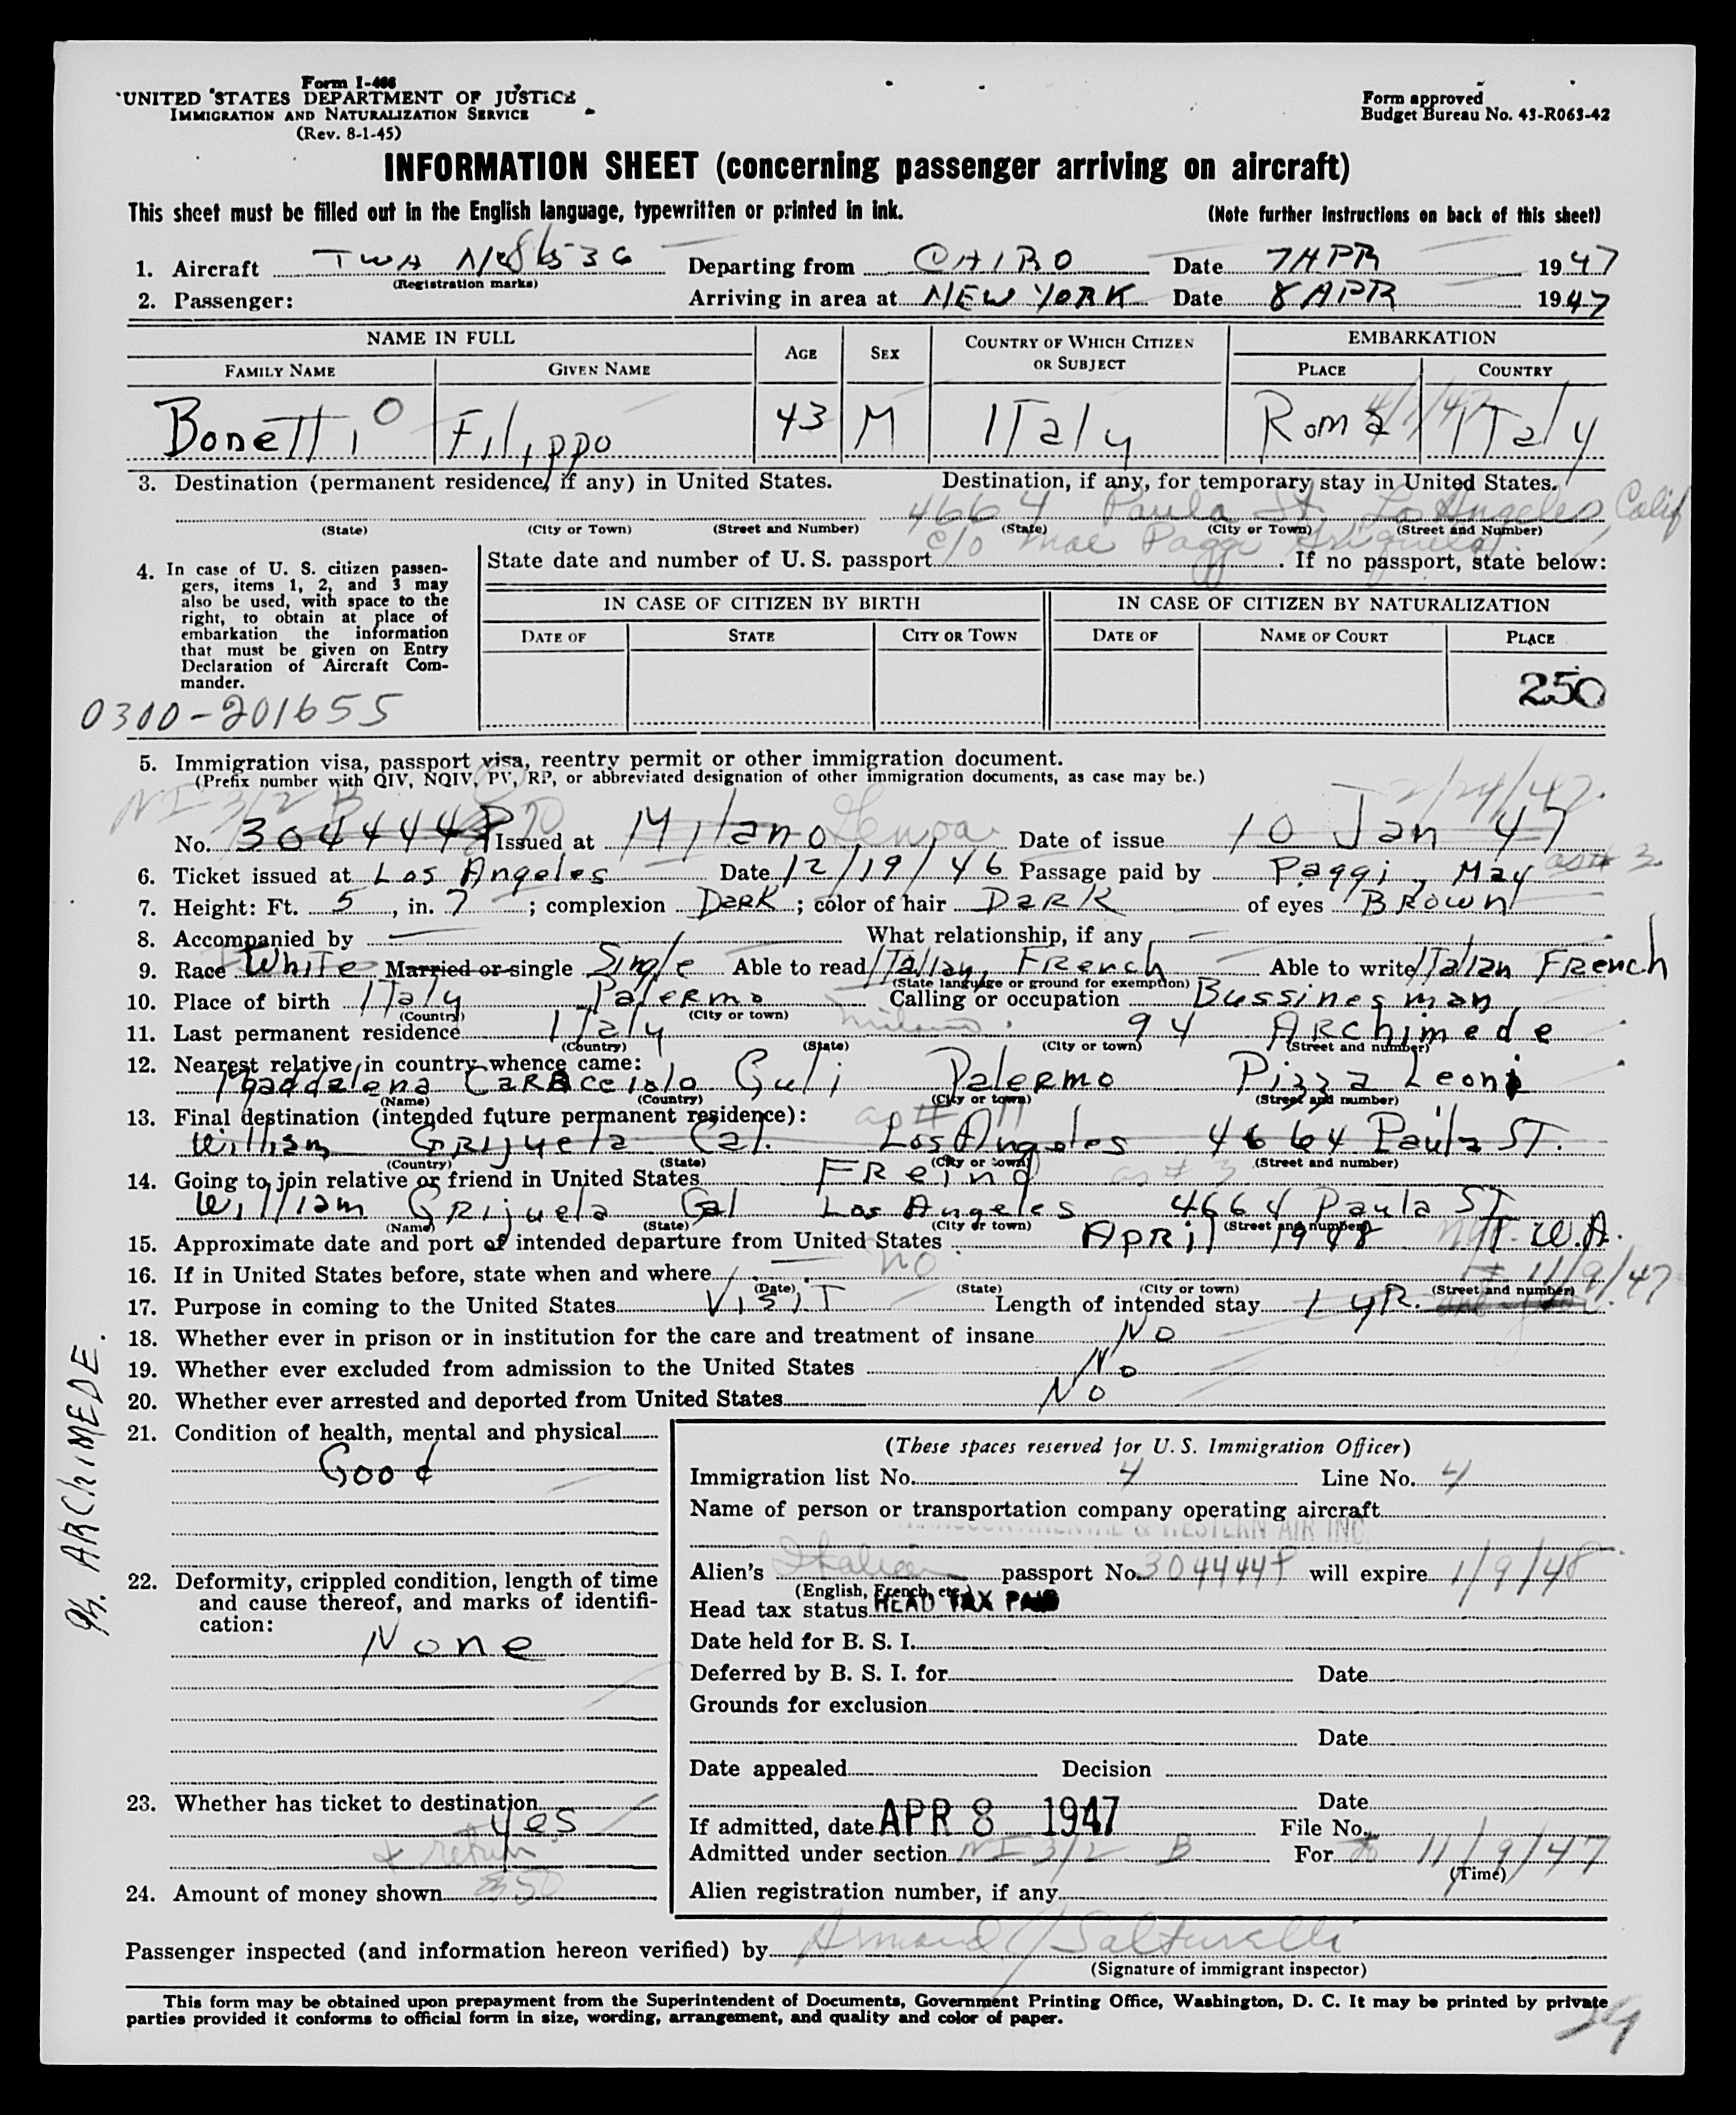 Form I-466
UNITED STATES DEPARTMENT OF JUSTICE
IMMIGRATION AND NATURALIZATION SERVICE
(Rev. 8-1-45)
Form approved
Budget Bureau No. 43-R063-42
INFORMATION SHEET (concerning passenger arriving on aircraft)
This sheet must be filled out in the English language, typewritten or printed in ink. (Note further instructions on back of this sheet)
1. Aircraft TWA Departing from CAIRO Date 7 APR 1947
(Registration marks)
2. Passenger: Arriving in area at NEW YORK Date 8 APR 1947
NAME IN FULL AGE SEX COUNTRY OF WHICH CITIZEN OR SUBJECT EMBARKATION
FAMILY NAME GIVEN NAME PLACE COUNTRY
Bonetti O Filippo 43 M ITaly Roma 4/1/47 ITaly
3. Destination (permanent residence, if any) in United States. Destination, if any, for temporary stay in United States.
4664 Paula St. Los Angeles Calif
(State) (City or Town) (Street and Number) (State) (City or Town) (Street and Number)
c/o Mae Paggi
4. In case of U. S. citizen passengers, items 1, 2, and 3 may also be used, with space to the right, to obtain at place of embarkation the information that must be given on Entry Declaration of Aircraft Commander.
State date and number of U. S. passport . If no passport, state below:
IN CASE OF CITIZEN BY BIRTH IN CASE OF CITIZEN BY NATURALIZATION
DATE OF STATE CITY OR TOWN DATE OF NAME OF COURT PLACE
250
0300-201655
5. Immigration visa, passport visa, reentry permit or other immigration document.
(Prefix number with QIV, NQIV, PV, RP, or abbreviated designation of other immigration documents, as case may be.)
NI 3/2 B 2/24/47
No. 304444P Issued at Milano Genoa Date of issue 10 Jan 47
6. Ticket issued at Los Angeles Date 12/19/46 Passage paid by Paggi, May as # 3
7. Height: Ft. 5, in. 7; complexion Dark; color of hair Dark of eyes BROWN
8. Accompanied by — What relationship, if any —
9. Race White Married or single Single Able to read ITalian, FRench Able to write ITalian FRench
(State language or ground for exemption)
10. Place of birth ITaly Palermo Calling or occupation Bussinesman
(Country) (City or town)
11. Last permanent residence ITaly Milano 94 ARchimede
(Country) (State) (City or town) (Street and number)
12. Nearest relative in country whence came:
Maddalena Caracciolo Guli Palermo Pizza Leoni
(Name) (Country) (City or town) (Street and number)
13. Final destination (intended future permanent residence): as # 11
William GRijuela Cal. Los Angeles 4664 Paula ST.
(Country) (State) (City or town) (Street and number)
14. Going to join relative or friend in United States FReind as # 3
William GRijuela Cal Los Angeles 4664 Paula ST
(Name) (State) (City or town) (Street and number)
15. Approximate date and port of intended departure from United States April 1948 T.W.A.
16. If in United States before, state when and where — no 11/9/47
(Date) (State) (City or town) (Street and number)
17. Purpose in coming to the United States VisiT Length of intended stay 1 yR.
18. Whether ever in prison or in institution for the care and treatment of insane No
19. Whether ever excluded from admission to the United States No
20. Whether ever arrested and deported from United States No
94. ARCHIMEDE.
21. Condition of health, mental and physical
Good
22. Deformity, crippled condition, length of time and cause thereof, and marks of identification:
None
23. Whether has ticket to destination
yes
& return
24. Amount of money shown $50
(These spaces reserved for U. S. Immigration Officer)
Immigration list No. 4 Line No. 4
Name of person or transportation company operating aircraft
TRANSCONTINENTAL & WESTERN AIR INC.
Alien's Italian passport No. 304444P will expire 1/9/48
(English, French, etc.)
Head tax status HEAD TAX PAID
Date held for B. S. I.
Deferred by B. S. I. for Date
Grounds for exclusion
Date
Date appealed Decision
Date
If admitted, date APR 8 1947 File No.
Admitted under section NI 3/2 B For to 11/9/47
(Time)
Alien registration number, if any
Passenger inspected (and information hereon verified) by Armand J Salturelli
(Signature of immigrant inspector)
This form may be obtained upon prepayment from the Superintendent of Documents, Government Printing Office, Washington, D. C. It may be printed by private
parties provided it conforms to official form in size, wording, arrangement, and quality and color of paper.